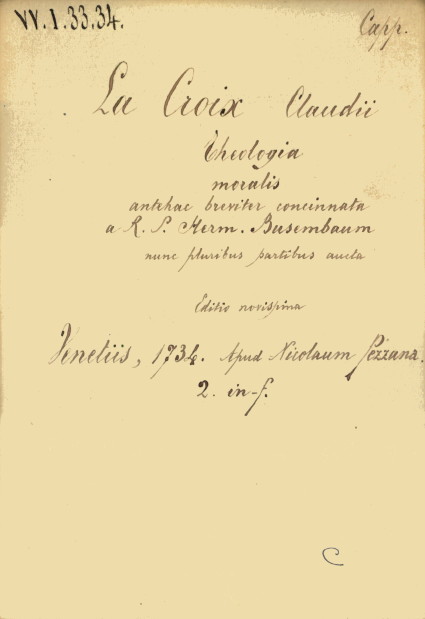 VV.1.33.34.
Capp.
La Croix Claudii
Theologia
moralis
antehac breviter concinnata
a R. P. Herm. Busembaum
nunc pluribus partibus aucta
Editio novissima
Venetiis, 1734. Apud Nicolaum Pezzana.
2. in-f.
C